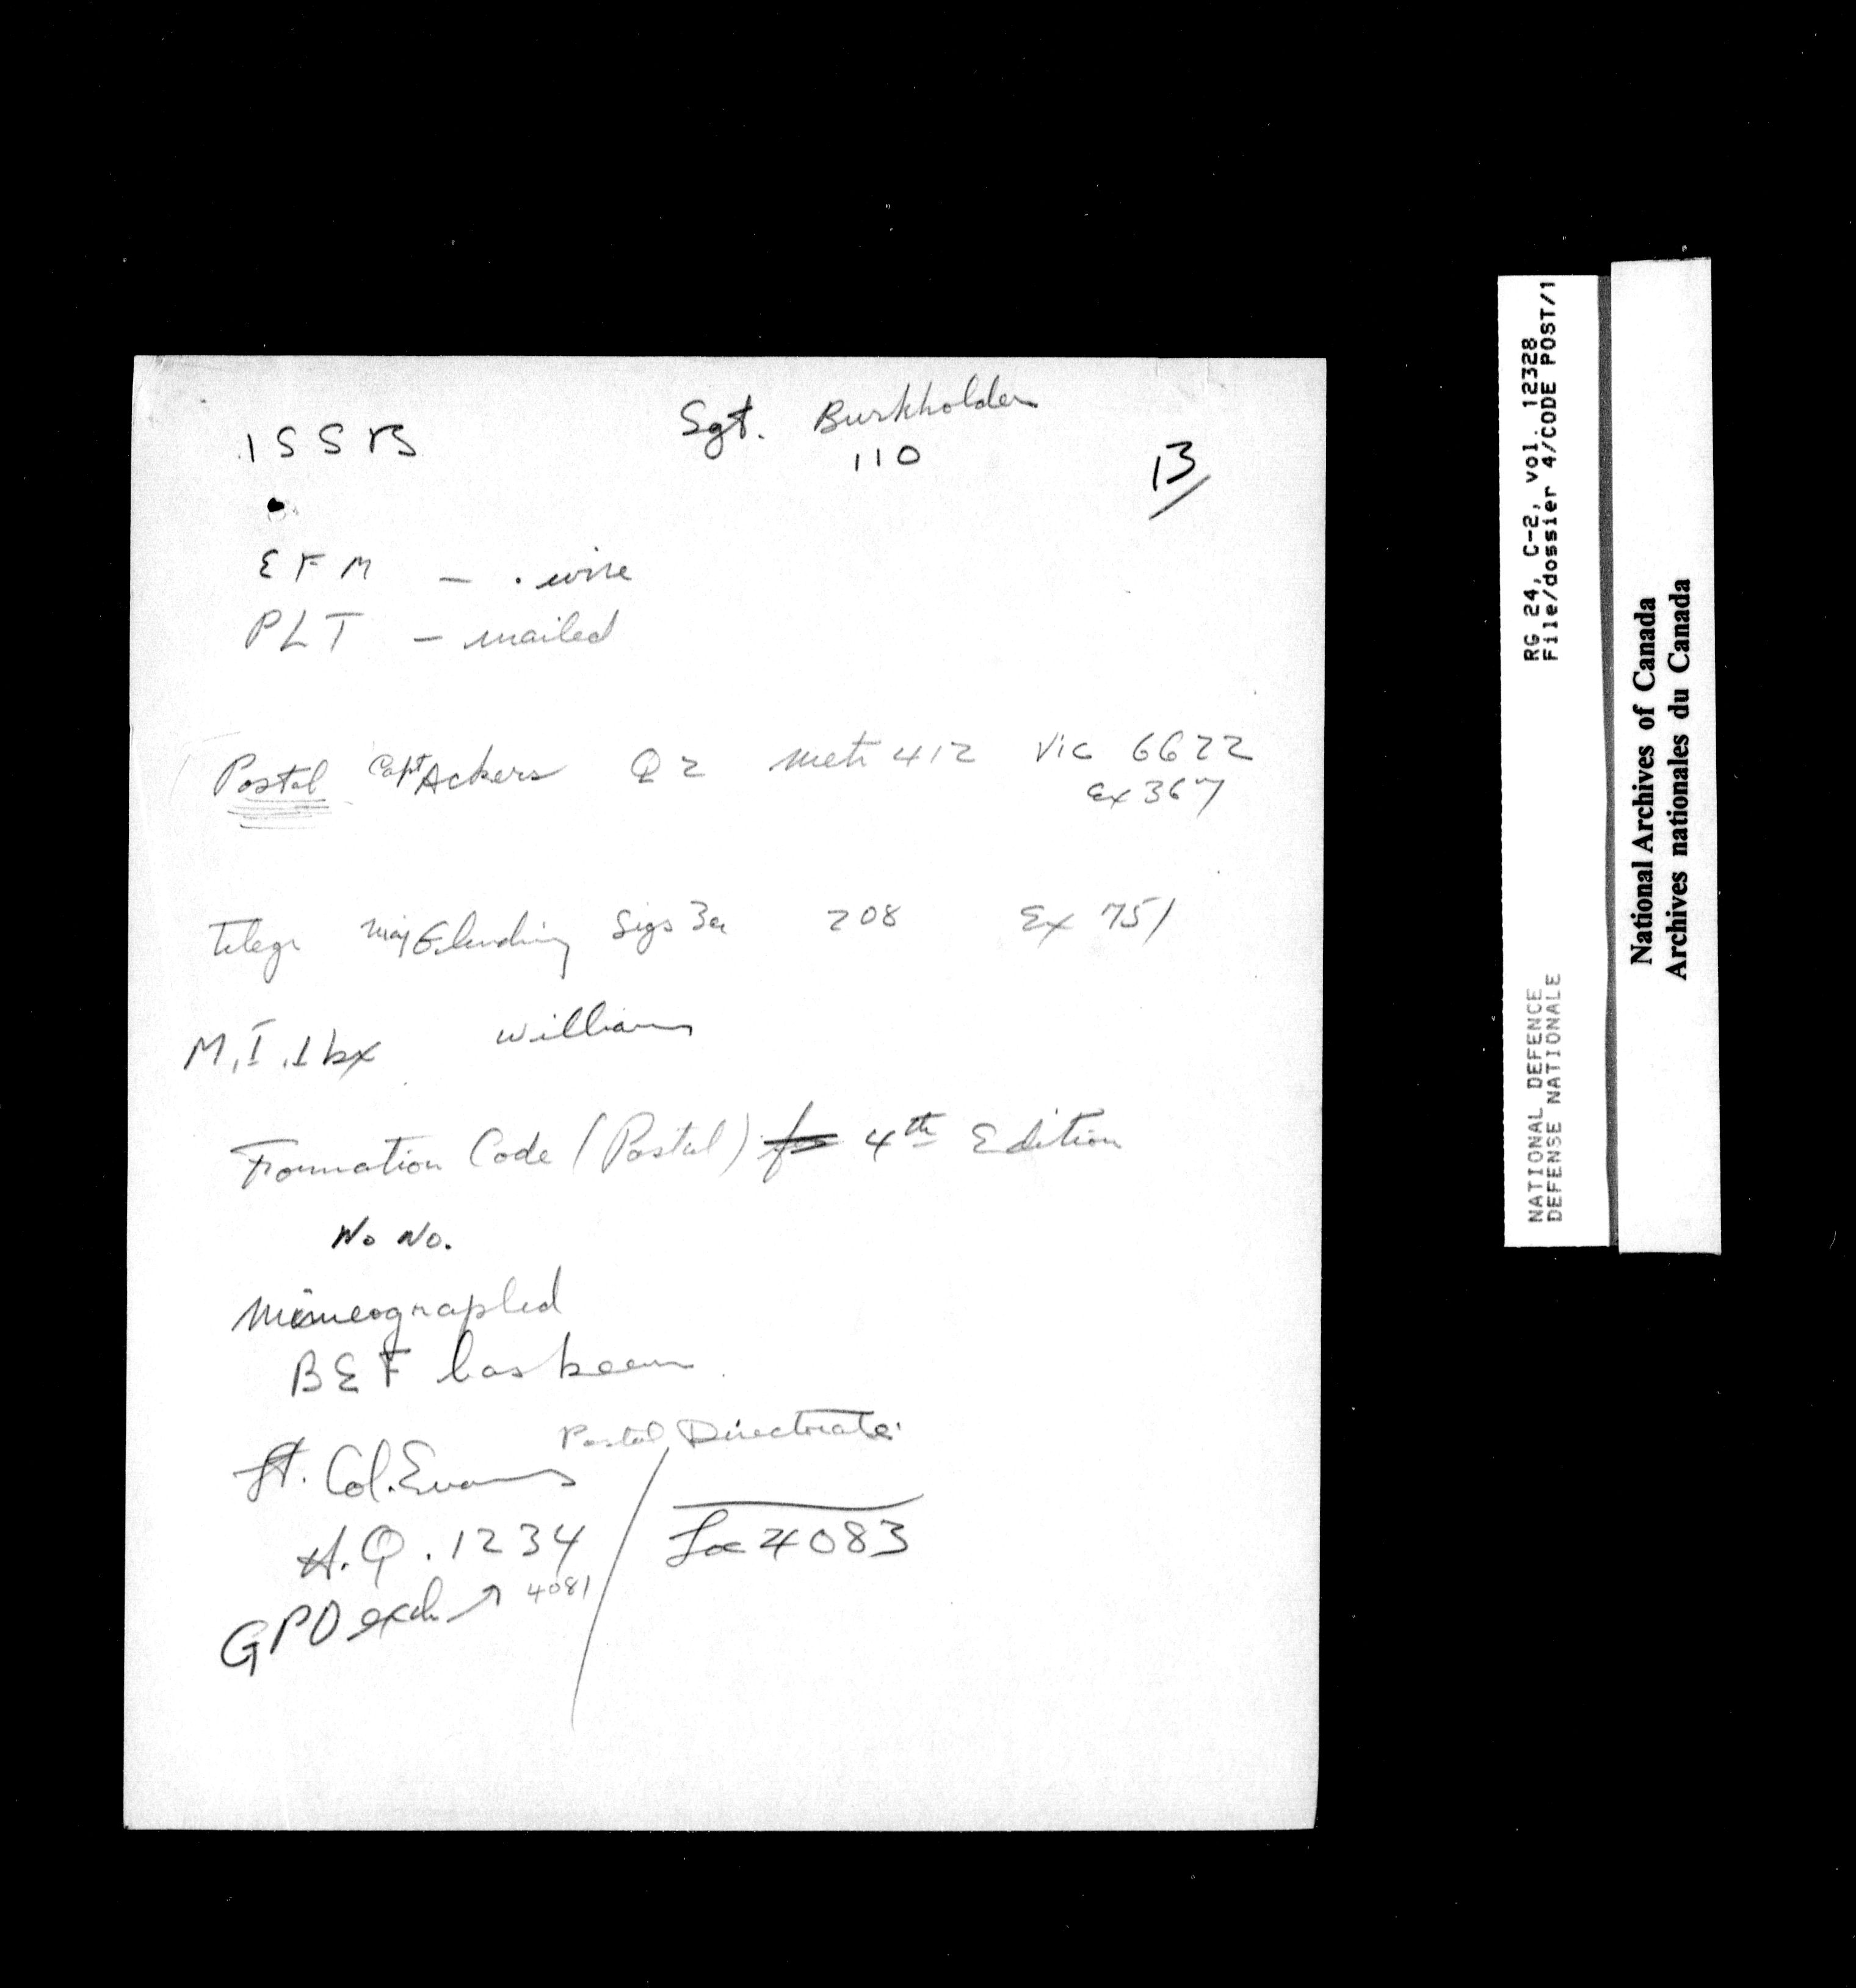 ISSB
Sgt. Burkholder
110
13/
EFM - . wire
PLT - mailed
Postal Capt Ackers Q2 Metr 412 Vic 6622
Ex 367
Telegr Maj Glending Sigs 3a 208 Ex 751
M.I.1bx Williams
Formation Code (Postal) for 4th Edition
No No.
Mimeographed
BEF has been
Postal Directorate
Lt. Col. Evans
H.Q. 1234
4083
GPO exch 4081
RG 24, C-2, vol. 12328
File/dossier 4/CODE POST/1
NATIONAL DEFENCE
DEFENSE NATIONALE
National Archives of Canada
Archives nationales du Canada